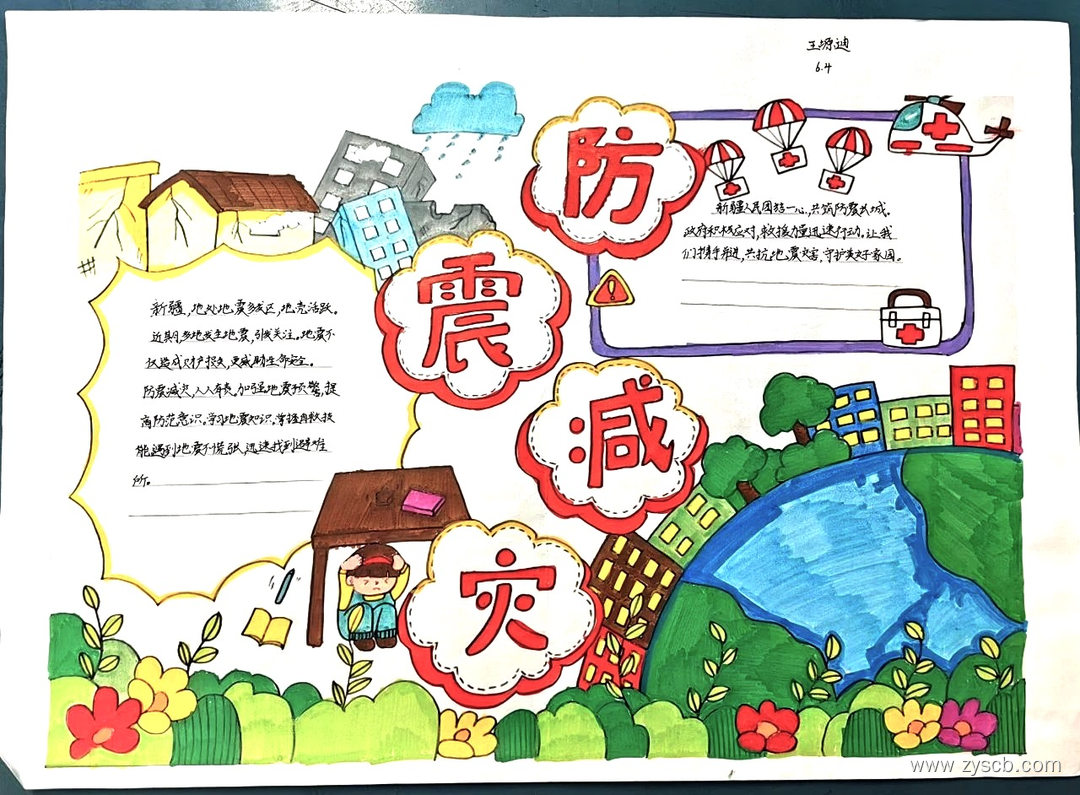 王塬迪
6.4
防
震
减
灾
新疆,地处地震多发区,地壳活跃。
近期,多地发生地震,引发关注。地震不
仅造成财产损失,更威胁生命安全。
防震减灾,人人有责。加强地震预警,提
高防范意识。学习地震知识,掌握自救技
能,遇到地震不慌张,迅速找到避难
所。
新疆人民团结一心,共筑防震长城。
政府积极应对,救援力量迅速行动。让我
们携手并进,共抗地震灾害,守护美好家园。
www.zyscb.com